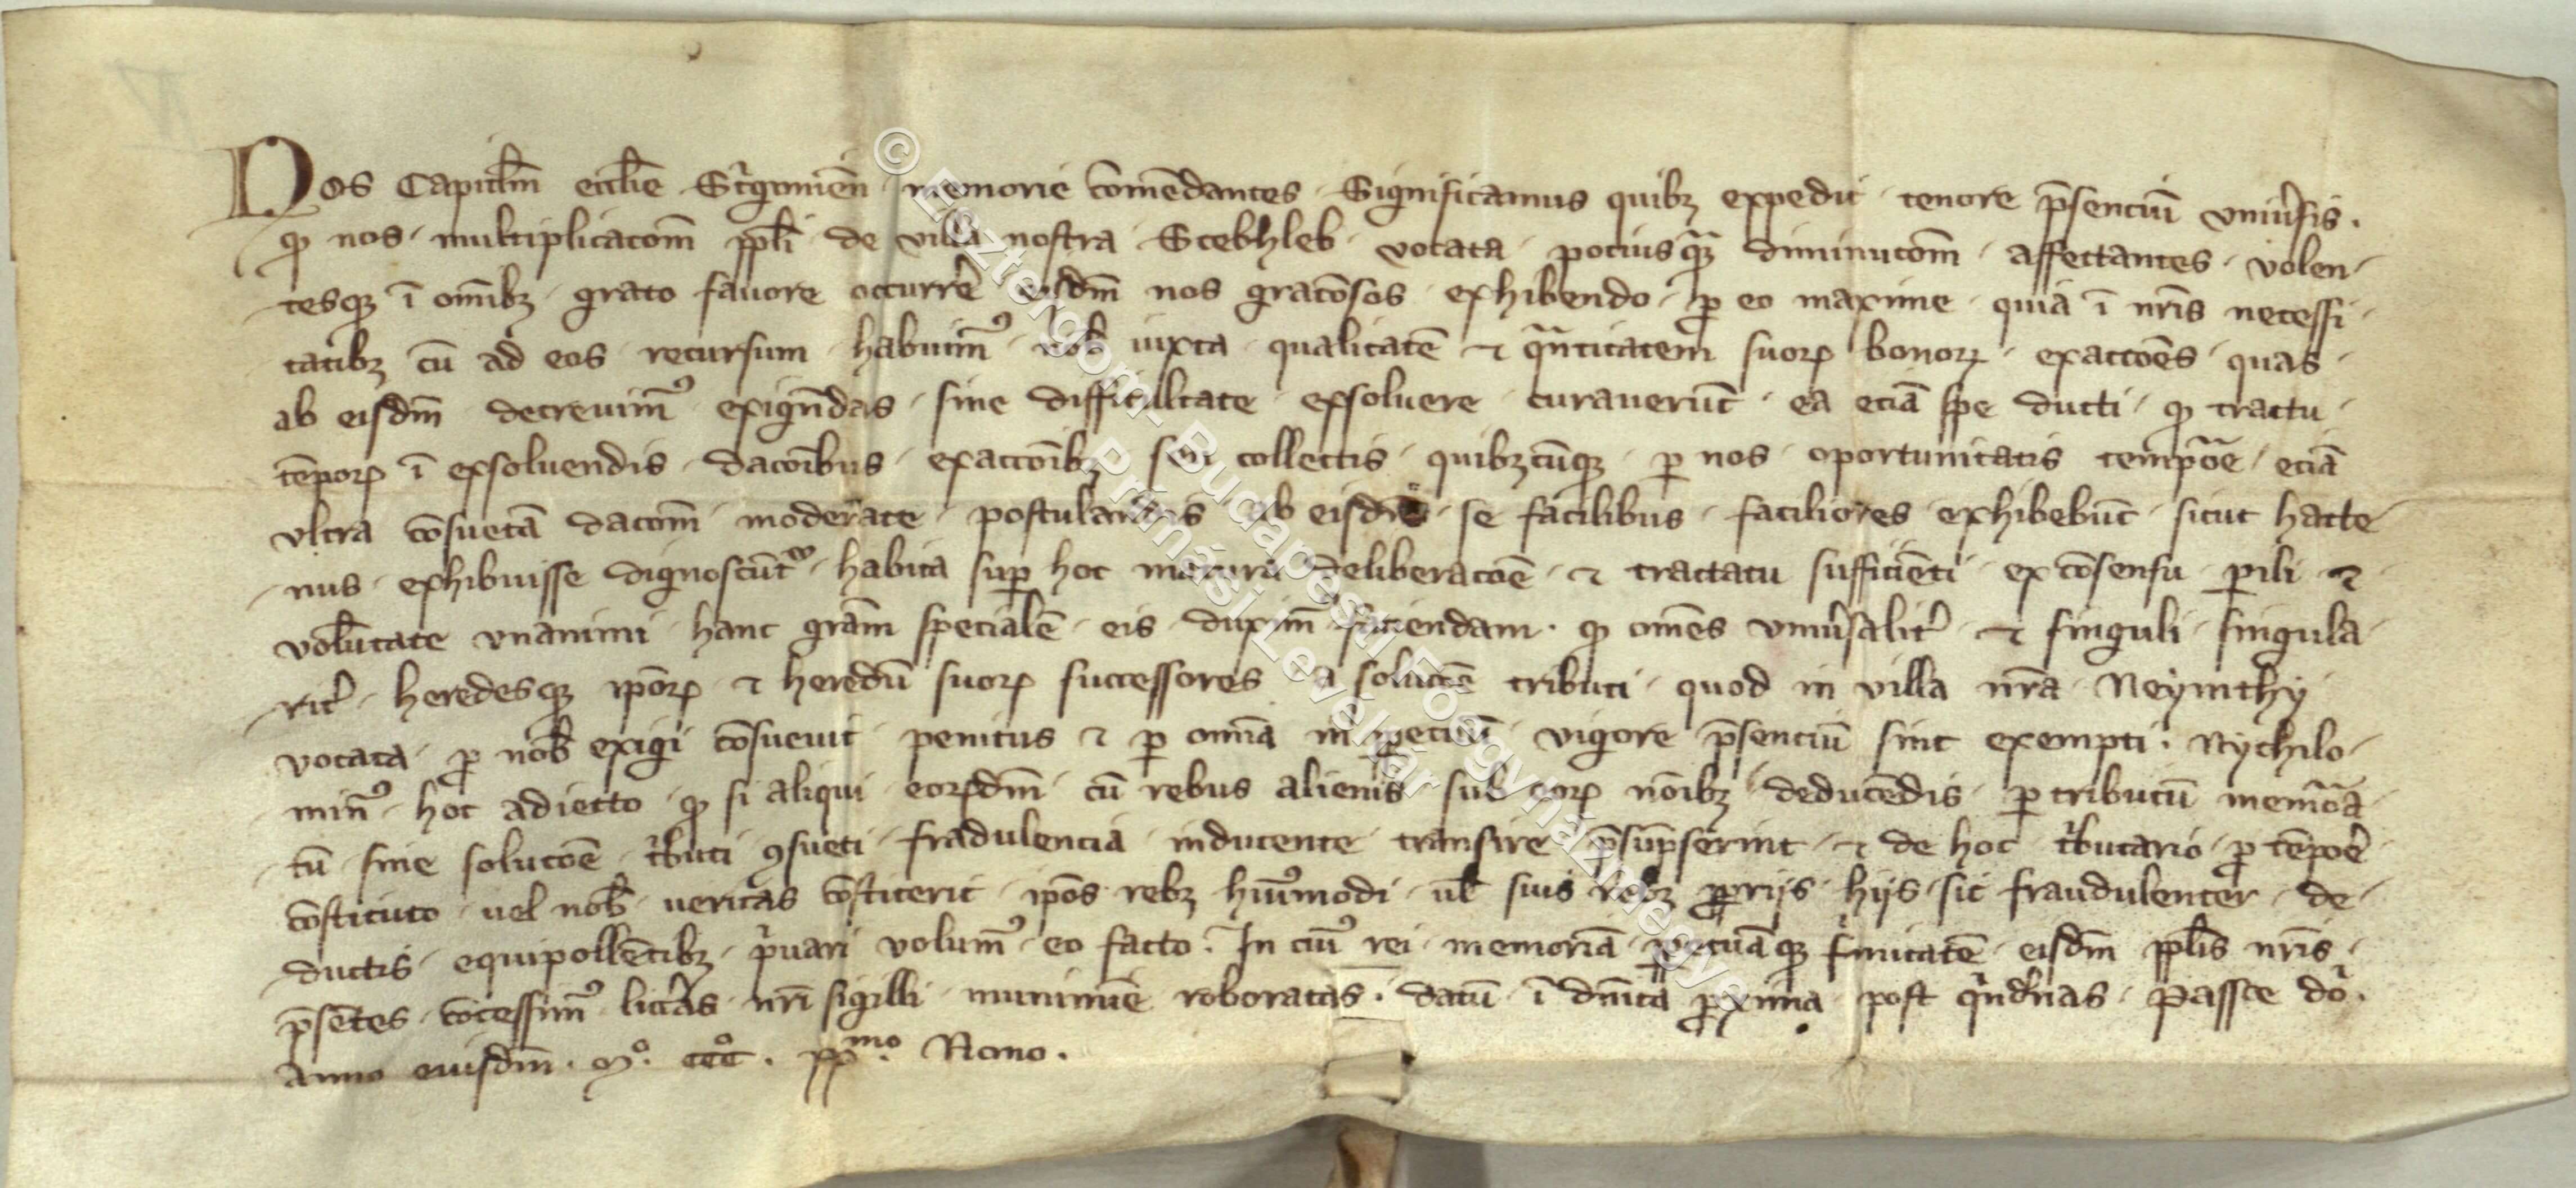 Nos Capitl̅m eccl̅ie Strigonien̅ memorie com̅endantes Significamus quibꝫ expedit tenore p̅senciu̅ vniu͛sis.
ꝙ nos multiplicaco̅m ppl̅i de villa nostra Scebhleb vocata pocius qᷓꝫ diminuco̅m affectantes volen-
tesqꝫ i̅ om̅ibꝫ grato fauore occurre͛ eisdm̅ nos graco̅sos exhibendo ꝓ eo maxime quia i̅ nr̅is necessi-
tatibꝫ cu̅ ad eos recursum habuimꝰ nob̅ iuxta qualitate̅ ⁊ qᷓntitatem suoꝝ bonoꝝ exacco̅es quas
ab eisdm̅ decreuimꝰ exige̅ndas sine difficultate exsoluere curaueru̅t ea ecia̅ spe ducti ꝙ tractu
te̅poꝝ i̅ exsoluendis daco̅ibus exacco̅ibꝫ seu collectis quibꝫcu̅qꝫ ꝑ nos oportunitatis tempo͛e ecia̅
vltra co̅sueta̅ daco̅m moderate postulandis ab eisdm̅ se facilibus faciliores exhibebu̅t sicut hacte
nus exhibuisse dignoscu̅tᷣ habita suꝑ hoc matura deliberaco̅e ⁊ tractatu sufficie̅ti ex co̅sensu ꝑili ⁊
volu̅tate vnanimi hanc gr̅am speciale̅ eis duximꝰ faciendam ꝙ om̅es vniu͛salit͛ ⁊ singuli singula
rit͛ heredesqꝫ ip̅oꝝ ⁊ heredu̅ suoꝝ successores a soluco̅e tributi quod in villa nr̅a Neymthy
vocata ꝓ nob̅ exigi co̅sueuit penitus ⁊ ꝑ om̅ia in ꝑpetuu̅ vigore p̅senciu̅ sint exempti. Nychilo
minꝰ hoc adiecto ꝙ si aliqui eoꝝdm̅ cu̅ rebus alienis sub eoꝝ no̅ibꝫ deduce̅dis ꝑ tributu̅ memo͛a
tu̅ sine soluco̅e t͛buti ꝯsueti fradulencia inducente transire p̅su̅pserint ⁊ de hoc t͛butario ꝓ te̅poe͛
co̅stituto uel nob̅ ueritas co̅stiterit ip̅os rebꝫ hui̅ꝰmodi ul̅ suis rebꝫ ꝓprijs hijs sic fraudulenter de
ductis equipolle̅tibꝫ p͛uari volumꝰ eo facto. In cuiꝰ rei memoria̅ ꝑpetua̅qꝫ f͛mitate̅ eisdm̅ ppl̅is nr̅is
p̅se̅tes co̅cessimꝰ litt͛as nr̅i sigilli munimi̅e roboratas. datu̅ i̅ dn̅ica ꝓxima post qi̅nde̅nas Passce do͛.
Anno eiusdm̅. mͦ. cccͦ. xxᵐᵒ. Nono.